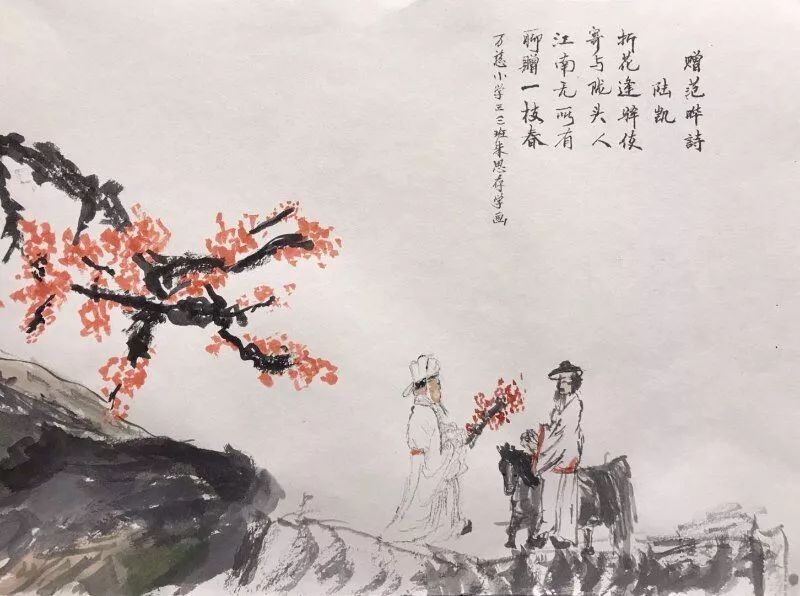 赠范晔詩
陆凯
折花逢驿使
寄与陇头人
江南无所有
聊赠一枝春
小学三班朱思存学画